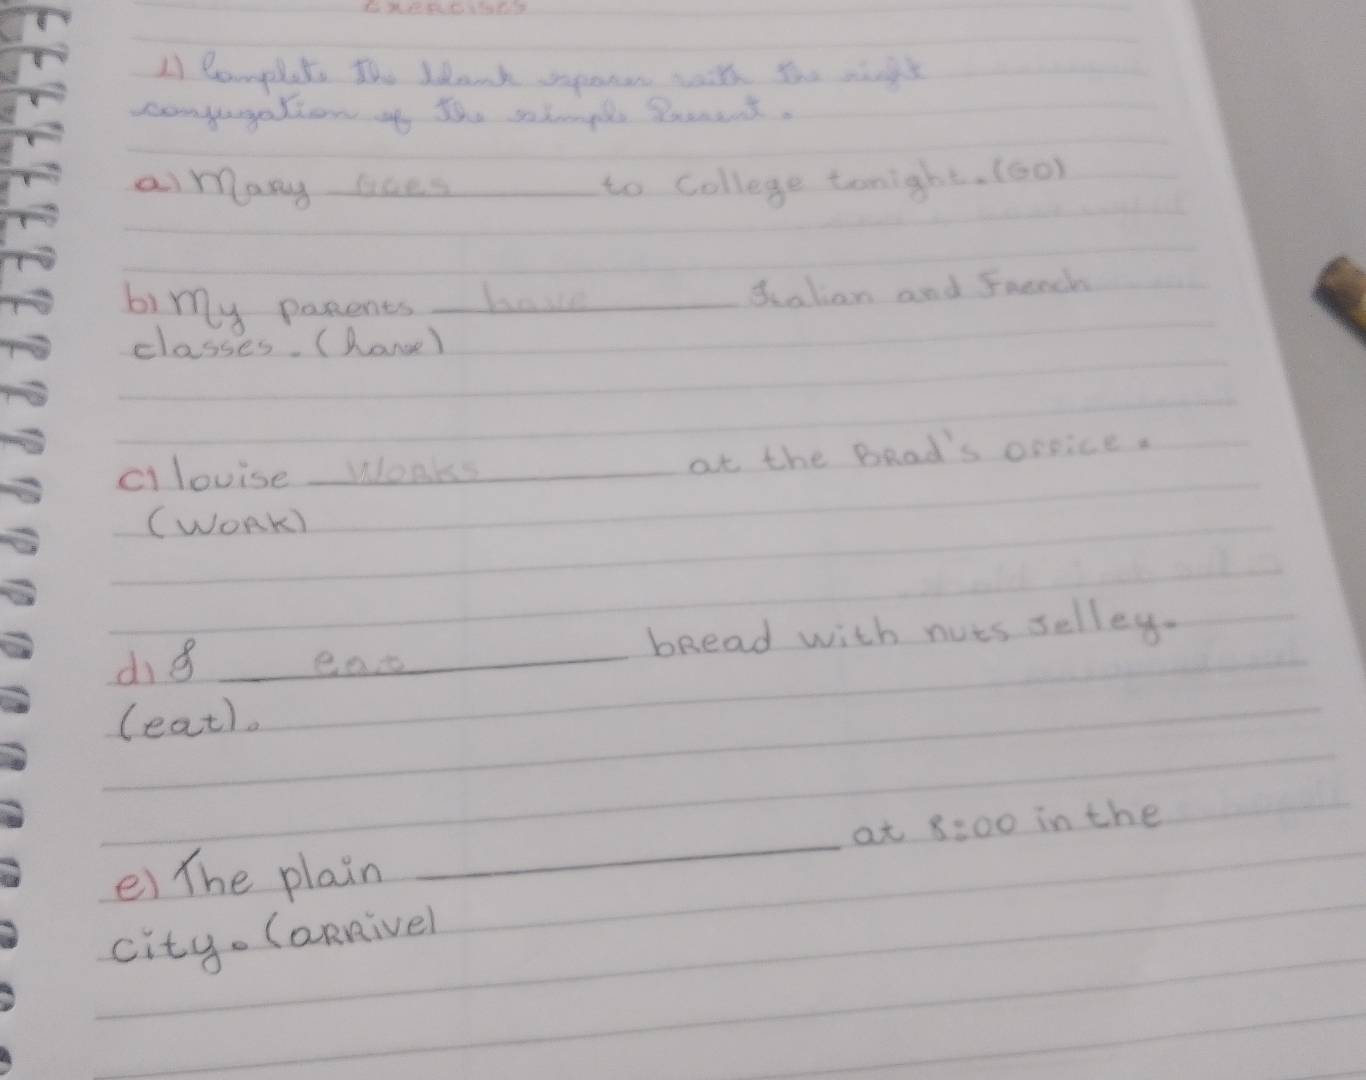 Exercises
1) Complete the blank spaces with the right
conjugation of the simple Present.
a) Mary Goes to College tonight. (GO)
b) My parents have Italian and French
classes. (have)
c) louise Works at the Brad's office.
(WORK)
d) I eat bread with nuts Jelley.
(eat).
e) The plain at 8:00 in the
city. (arrive)